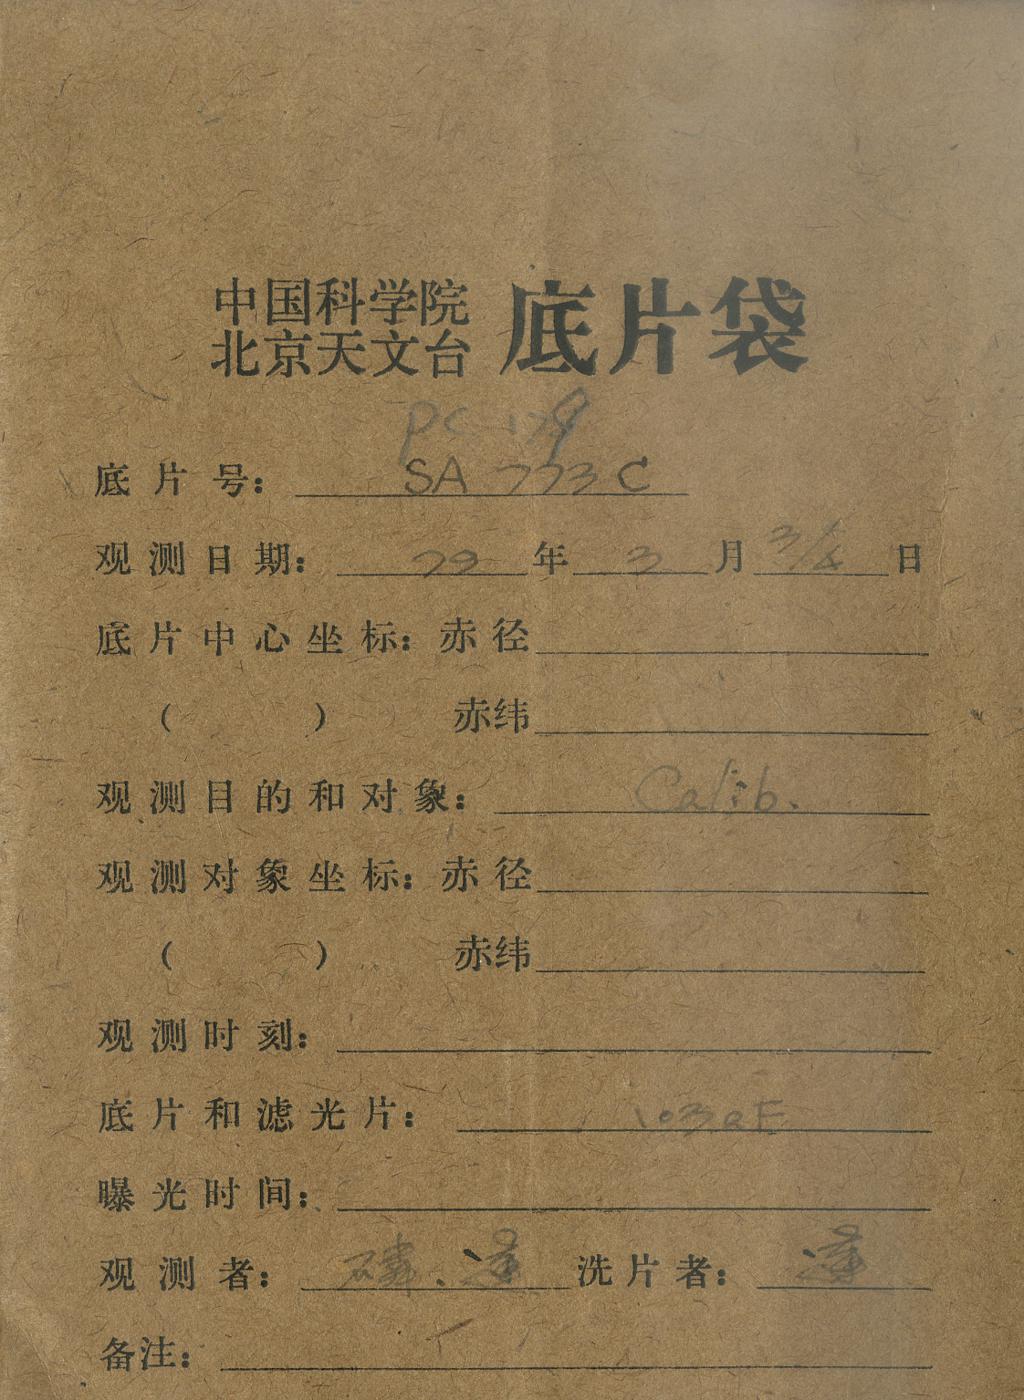 中国科学院
北京天文台 底片袋
底片号： SA 773 C
观测日期： 79 年 3 月 3/4 日
底片中心坐标：赤径
（ ） 赤纬
观测目的和对象： Calib.
观测对象坐标：赤径
（ ） 赤纬
观测时刻：
底片和滤光片： 103aE
曝光时间：
观测者： 洗片者：
备注：